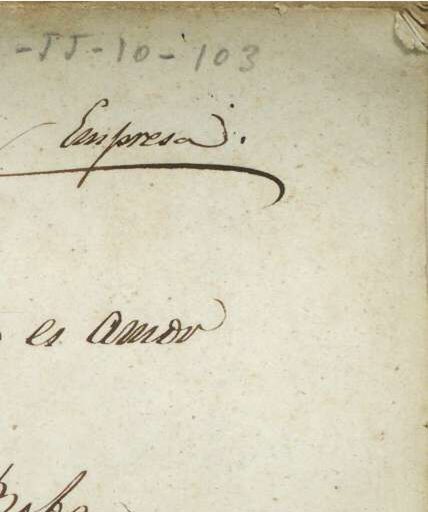 -JJ-10-103
Empresa.
es amor